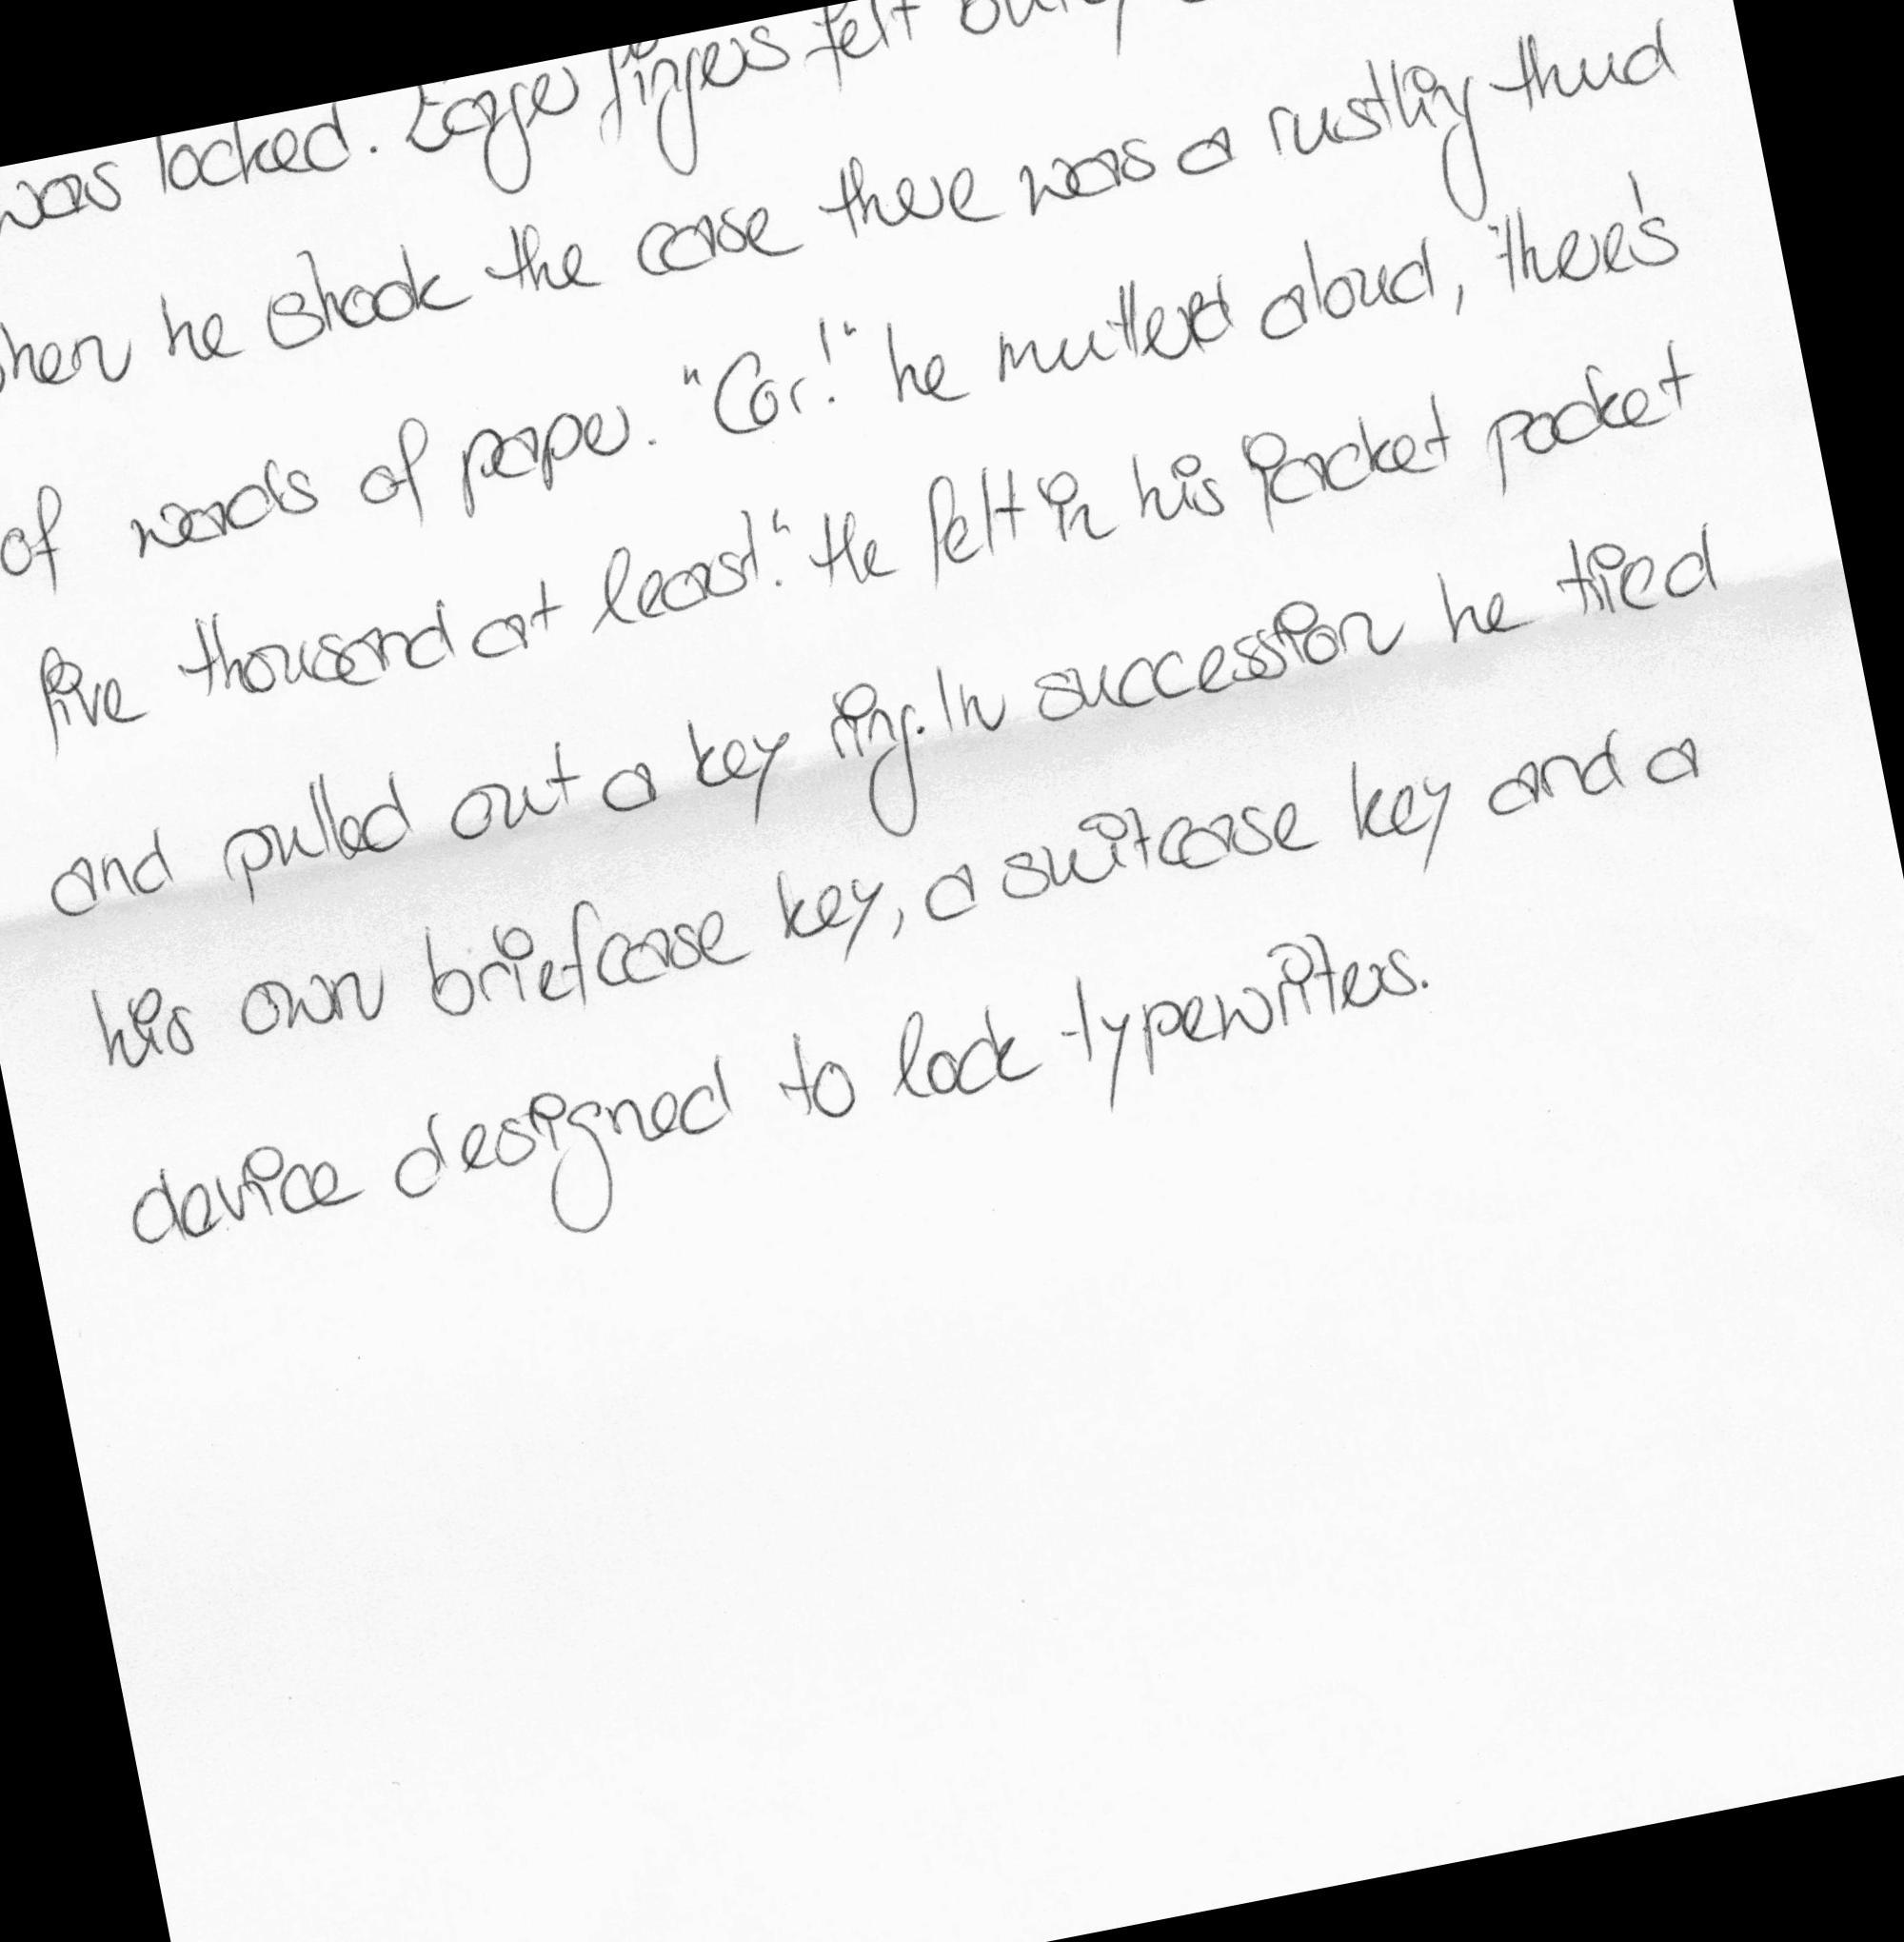 was locked. Eager fingers felt
when he shook the case there was a rustling thud
of wads of paper. "Cor!" he muttered aloud, "there's
five thousand at least." He felt in his jacket pocket
and pulled out a key ring. In succession he tried
his own briefcase key, a suitcase key and a
device designed to lock typewriters.